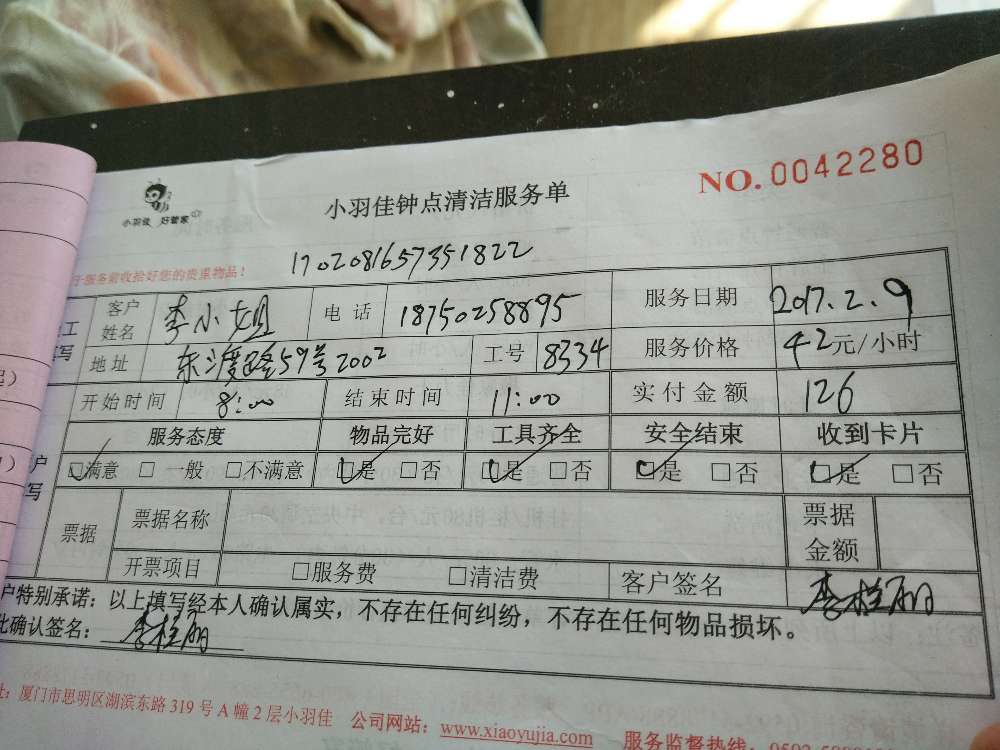 小羽佳 好管家
小羽佳钟点清洁服务单
NO. 0042280
于服务前收拾好您的贵重物品！
1702081657351822
客户姓名 李小姐 电话 18750258895 服务日期 2017.2.9
地址 东渡路59号2002 工号 8334 服务价格 42元/小时
开始时间 8:00 结束时间 11:00 实付金额 126
服务态度 物品完好 工具齐全 安全结束 收到卡片
☑满意 □一般 □不满意 ☑是 □否 ☑是 □否 ☑是 □否 ☑是 □否
票据 票据名称 票据金额
开票项目 □服务费 □清洁费 客户签名 李桂丽
户特别承诺：以上填写经本人确认属实，不存在任何纠纷，不存在任何物品损坏。
此确认签名：李桂丽
址：厦门市思明区湖滨东路319号A幢2层小羽佳 公司网站：www.xiaoyujia.com 服务监督热线：